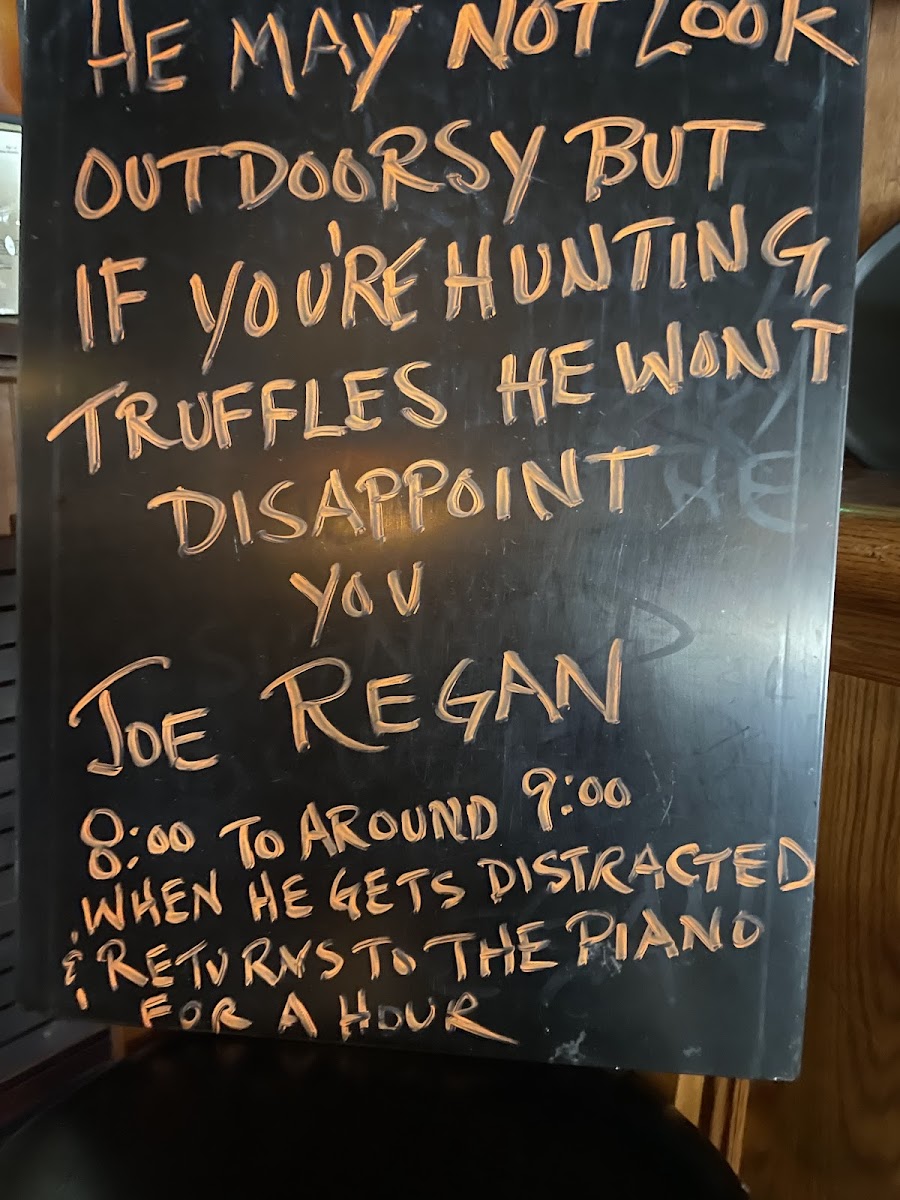 HE MAY NOT LOOK
OUTDOORSY BUT
IF YOU'RE HUNTING,
TRUFFLES HE WON'T
DISAPPOINT
YOU
JOE REGAN
8:00 TO AROUND 9:00
WHEN HE GETS DISTRACTED
& RETURNS TO THE PIANO
FOR A HOUR